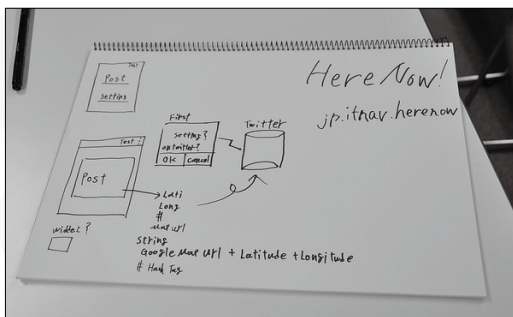 Here Now!
jp.itnav.herenow
Test
Post
setting
First
setting?
on twitter?
OK cancel
Twitter
Test :
Post
Lati
Long
#
Map url
widget?
String
Google Map url + Latitude + Longitude
# Hash Tag